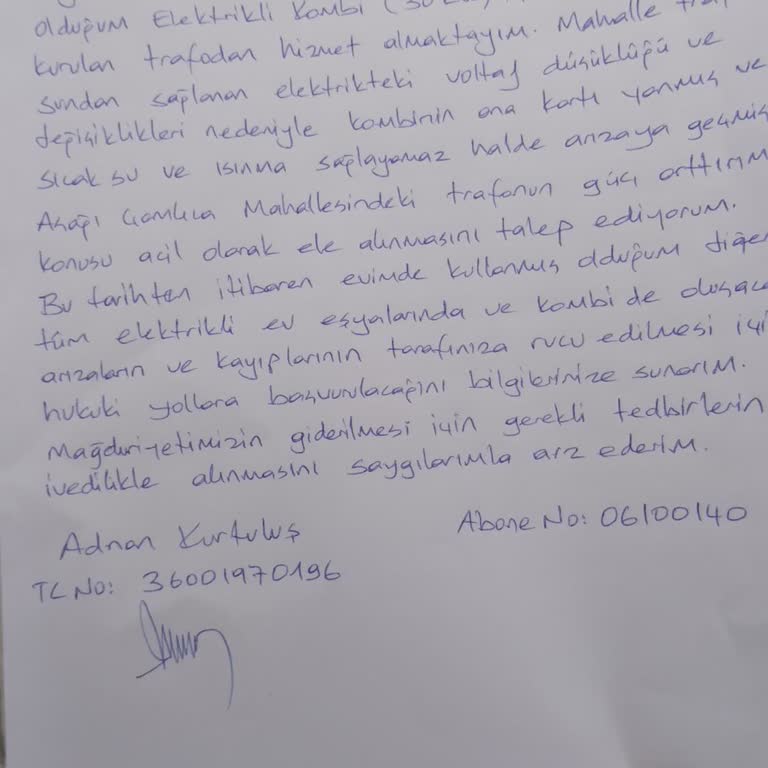 olduğum Elektrikli Kombi
kurulan trafodan hizmet almaktayım. Mahalle
sundan sağlanan elektrikteki voltaj düşüklüğü ve
değişiklikleri nedeniyle kombinin ana kartı yanmış ve
sıcak su ve ısınma sağlayamaz halde arızaya geçmiş
Aşağı Çamlıca Mahallesindeki trafonun güç arttırım
konusu acil olarak ele alınmasını talep ediyorum.
Bu tarihten itibaren evimde kullanmış olduğum diğer
tüm elektrikli ev eşyalarında ve kombi de oluşaca
arızaların ve kayıplarının tarafınıza rucu edilmesi içi
hukuki yollara başvurulacağını bilgilerinize sunarım.
Mağduriyetimizin giderilmesi için gerekli tedbirlerin
ivedilikle alınmasını saygılarımla arz ederim.
Adnan Kurtuluş
Abone No: 06100140
TC No: 36001970196